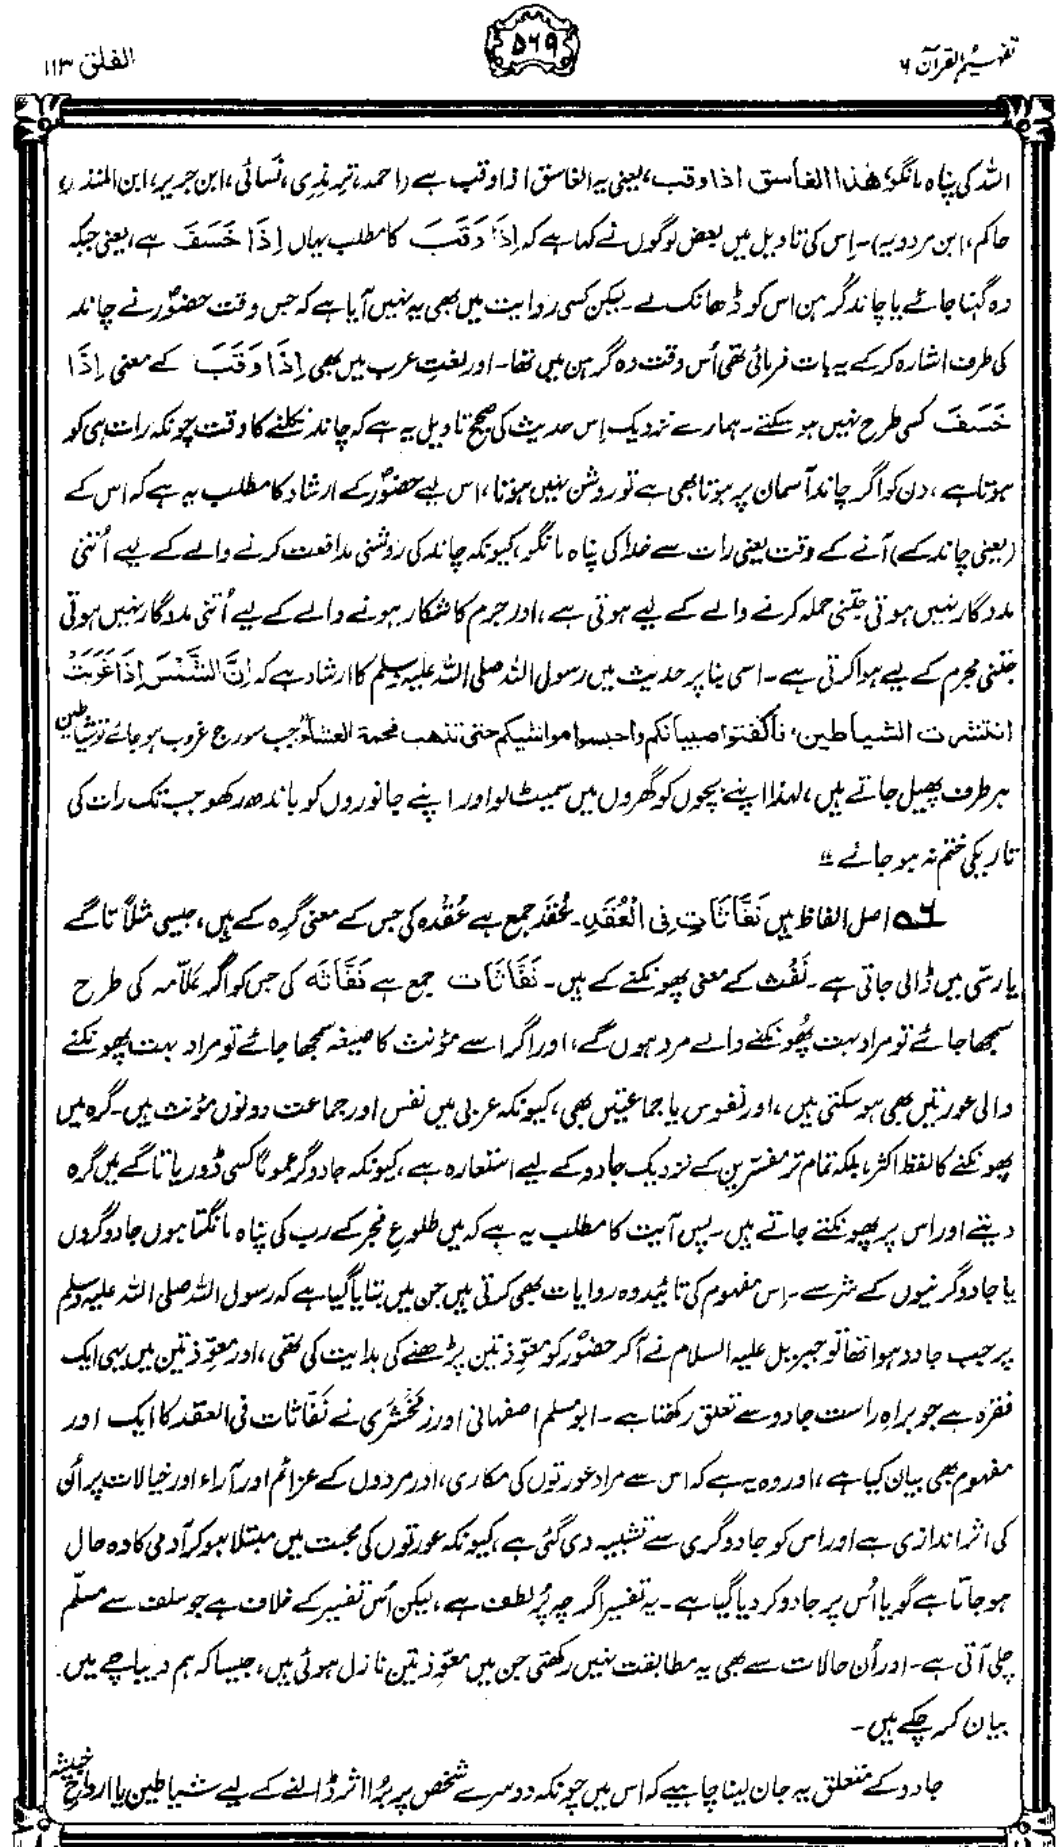 تفہیم القرآن ۶
۵۶۹
الفلق ۱۱۳
اللہ کی پناہ مانگو، ھذا الغاسق اذا وقب، یعنی یہ الغاسق اذا وقب ہے (احمد، ترمذی، نسائی، ابن جریر، ابن المنذر،
حاکم، ابن مردویہ)۔ اِس کی تاویل میں بعض لوگوں نے کہا ہے کہ اِذَا وَقَبَ کا مطلب یہاں اِذَا خَسَفَ ہے، یعنی جبکہ
وہ گہنا جائے یا چاند گرہن اس کو ڈھانک لے۔ لیکن کسی روایت میں بھی یہ نہیں آیا ہے کہ جس وقت حضورؐ نے چاند
کی طرف اشارہ کر کے یہ بات فرمائی تھی اُس وقت وہ گرہن میں تھا۔ اور لغتِ عرب میں بھی اِذَا وَقَبَ کے معنی اِذَا
خَسَفَ کسی طرح نہیں ہو سکتے۔ ہمارے نزدیک اِس حدیث کی صحیح تاویل یہ ہے کہ چاند نکلنے کا وقت چونکہ رات ہی کو
ہوتا ہے، دن کو اگر چاند آسمان پر ہوتا بھی ہے تو روشن نہیں ہوتا، اس لیے حضورؐ کے ارشاد کا مطلب یہ ہے کہ اس کے
(یعنی چاند کے) آنے کے وقت یعنی رات سے خدا کی پناہ مانگو، کیونکہ چاند کی روشنی مدافعت کرنے والے کے لیے اُتنی
مددگار نہیں ہوتی جتنی حملہ کرنے والے کے لیے ہوتی ہے، اور جرم کا شکار ہونے والے کے لیے اُتنی مددگار نہیں ہوتی
جتنی مجرم کے لیے ہوا کرتی ہے۔ اسی بنا پر حدیث میں رسول اللہ صلی اللہ علیہ وسلم کا ارشاد ہے کہ اِنَّ الشَّمْسَ اِذَا غَرَبَتْ
انتشرت الشیاطین، فاکفتوا صبیانکم واحبسوا مواشیکم حتی تذھب فحمة العشاء، "جب سورج غروب ہو جائے تو شیاطین
ہر طرف پھیل جاتے ہیں، لہٰذا اپنے بچوں کو گھروں میں سمیٹ لو اور اپنے جانوروں کو باندھ رکھو جب تک رات کی
تاریکی ختم نہ ہو جائے۔"
۵۶ اصل الفاظ ہیں نَفَّاثَاتِ فِی الْعُقَدِ۔ عُقَد جمع ہے عُقْدہ کی جس کے معنی گرِہ کے ہیں، جیسی مثلاً تاگے
یا رسّی میں ڈالی جاتی ہے۔ نَفْث کے معنی پھونکنے کے ہیں۔ نَفَّاثَات جمع ہے نَفَّاثَہ کی جس کو اگر عَلّامہ کی طرح
سمجھا جائے تو مراد بہت پھُونکنے والے مرد ہوں گے، اور اگر اسے مؤنث کا صیغہ سمجھا جائے تو مراد بہت پھونکنے
والی عورتیں بھی ہو سکتی ہیں، اور نفوس یا جماعتیں بھی، کیونکہ عربی میں نفس اور جماعت دونوں مؤنث ہیں۔ گرہ میں
پھونکنے کا لفظ اکثر، بلکہ تمام تر مفسّرین کے نزدیک جادو کے لیے استعارہ ہے، کیونکہ جادوگر عموماً کسی ڈور یا تاگے میں گرہ
دیتے اور اس پر پھونکتے جاتے ہیں۔ پس آیت کا مطلب یہ ہے کہ میں طلوعِ فجر کے رب کی پناہ مانگتا ہوں جادوگروں
یا جادوگرنیوں کے شر سے۔ اِس مفہوم کی تائید وہ روایات بھی کرتی ہیں جن میں بتایا گیا ہے کہ رسول اللہ صلی اللہ علیہ وسلم
پر جب جادو ہوا تھا تو جبریل علیہ السلام نے آکر حضورؐ کو معوِّذتین پڑھنے کی ہدایت کی تھی، اور معوِّذتین میں یہی ایک
فقرہ ہے جو براہِ راست جادو سے تعلق رکھتا ہے۔ ابو مسلم اصفہانی اور زَمَخْشَری نے نَفّاثات فی العقد کا ایک اور
مفہوم بھی بیان کیا ہے، اور وہ یہ ہے کہ اس سے مراد عورتوں کی مکاری، اور مردوں کے عزائم اور آراء اور خیالات پر اُن
کی اثر اندازی ہے اور اس کو جادوگری سے تشبیہ دی گئی ہے، کیونکہ عورتوں کی محبت میں مبتلا ہو کر آدمی کا وہ حال
ہو جاتا ہے گویا اُس پر جادو کر دیا گیا ہے۔ یہ تفسیر اگرچہ پُر لطف ہے، لیکن اُس تفسیر کے خلاف ہے جو سلف سے مسلّم
چلی آتی ہے۔ اور اُن حالات سے بھی یہ مطابقت نہیں رکھتی جن میں معوِّذتین نازل ہوئی ہیں، جیسا کہ ہم دیباچے میں
بیان کر چکے ہیں۔
جادو کے متعلق یہ جان لینا چاہیے کہ اس میں چونکہ دوسرے شخص پر بُرا اثر ڈالنے کے لیے شیاطین یا ارواحِ خبیثہ